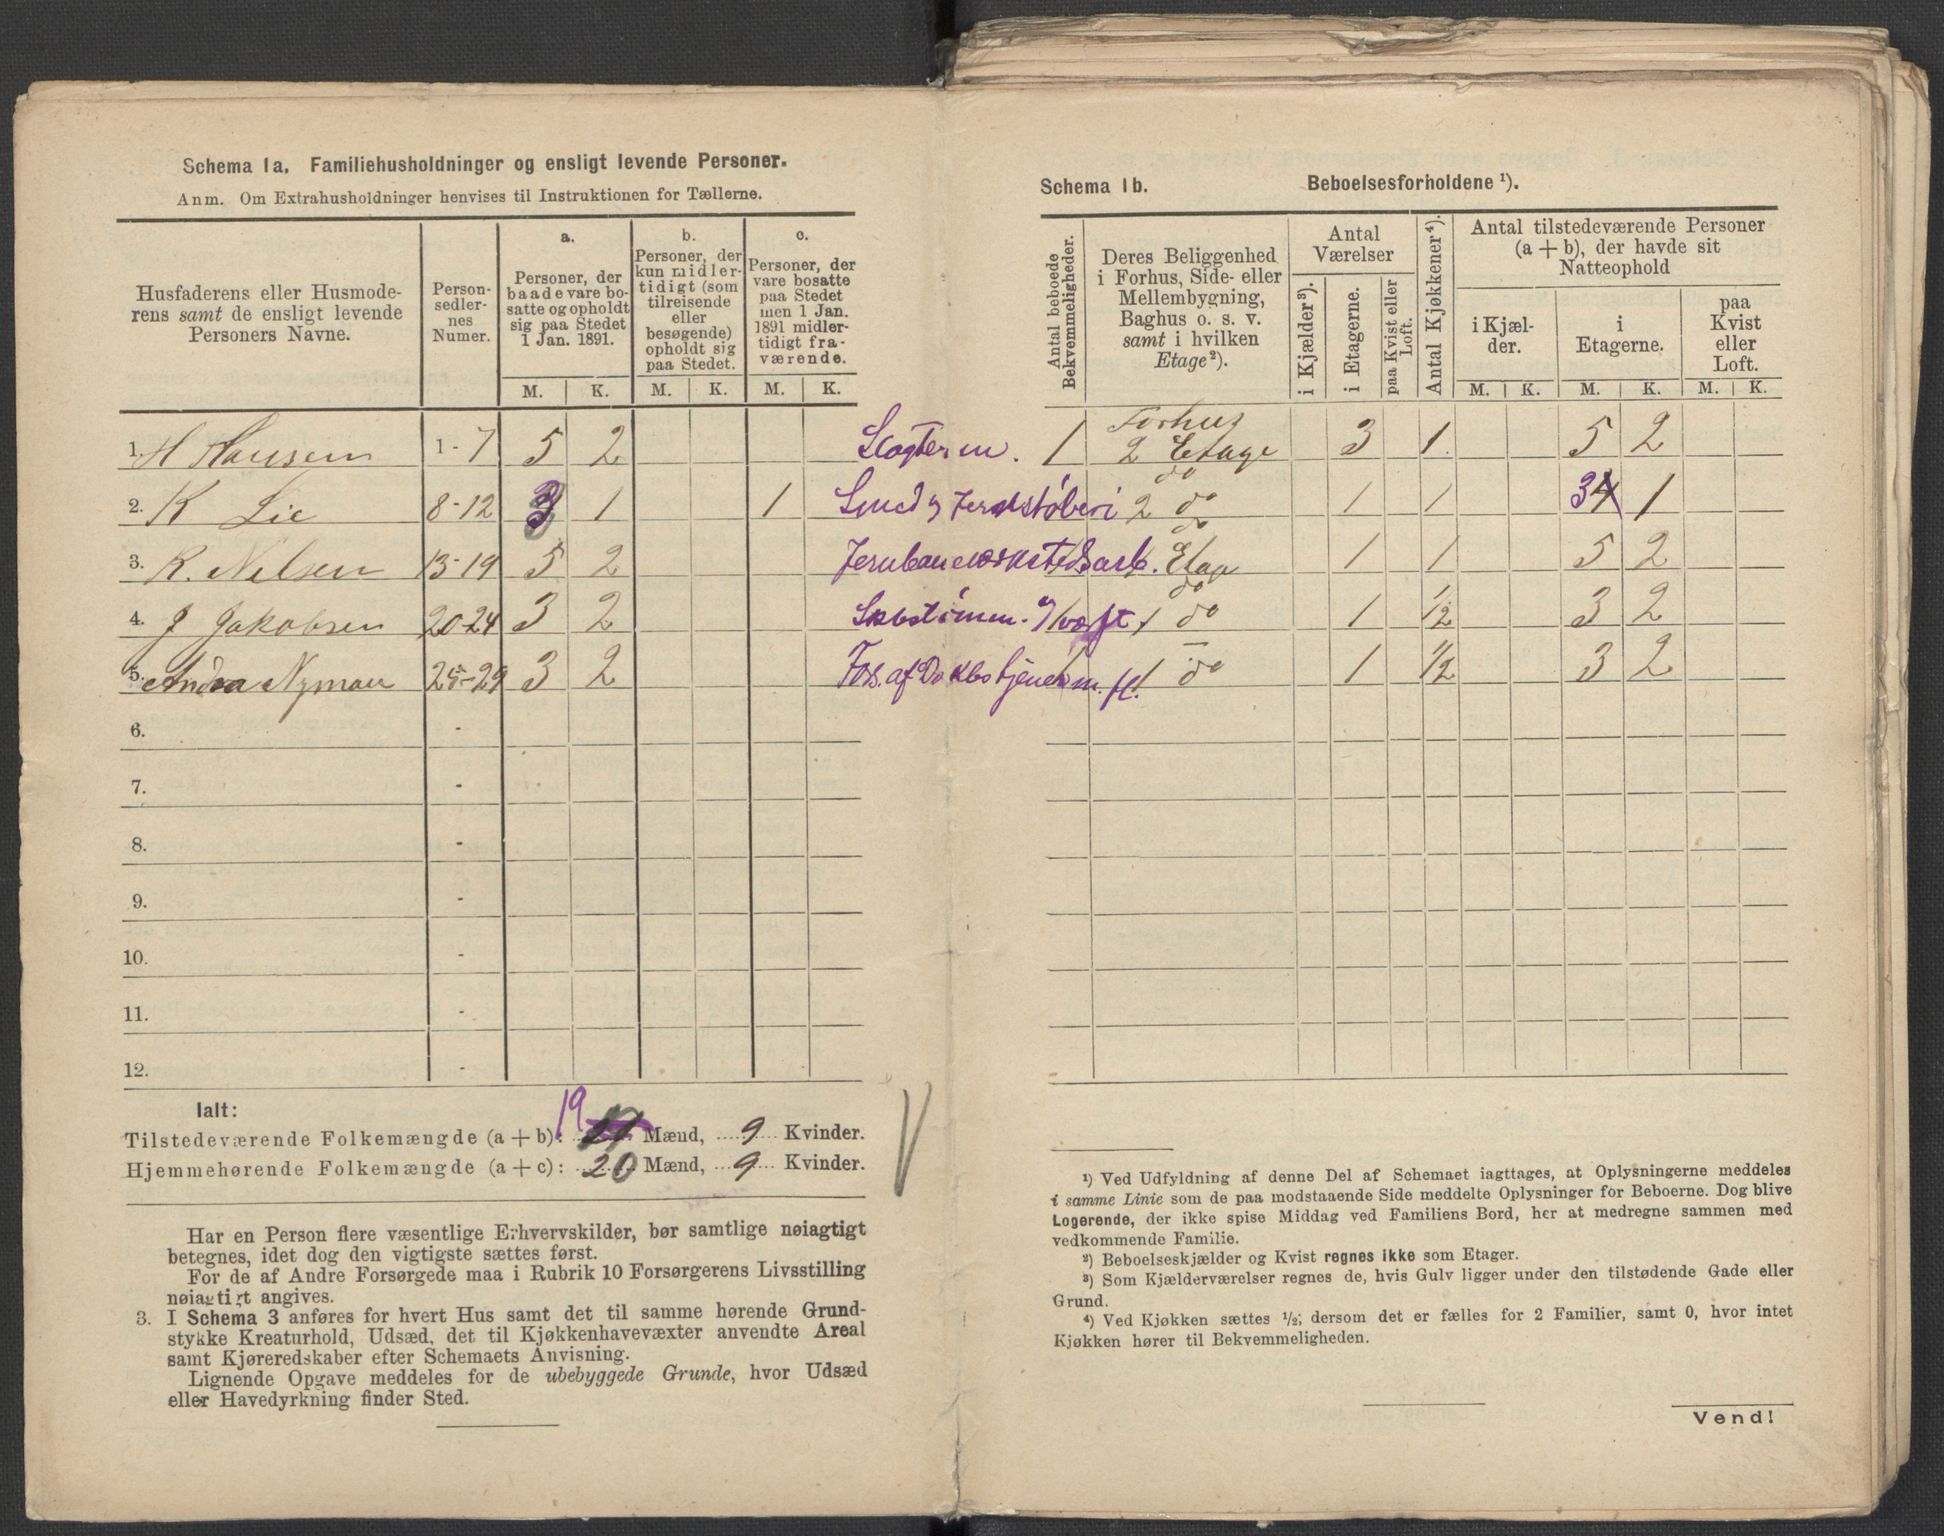 Schema 1a. Familiehusholdninger og ensligt levende Personer.
Anm. Om Extrahusholdninger henvises til Instruktionen for Tællerne.
Husfaderens eller Husmode-
rens samt de ensligt levende
Personers Navne.
Person-
sedler-
nes
Numer.
a.
Personer, der
baade vare bo-
satte og opholdt
sig paa Stedet
1 Jan. 1891.
b.
Personer, der
kun midler-
tidigt (som
tilreisende
eller
besøgende)
opholdt sig
paa Stedet.
c.
Personer, der
vare bosatte
paa Stedet
men 1 Jan.
1891 midler-
tidigt fra-
værende.
M. K. M. K. M. K.
1. H Hansen 1-7 5 2
2. K Lie 8-12 3 1 1
3. K. Nilsen 13-19 5 2
4. J Jakobsen 20-24 3 2
5. Andrea Nyman 25-29 3 2
6. -
7. -
8. -
9. -
10. -
11. -
12. -
Ialt:
Tilstedeværende Folkemængde (a + b): 19 Mænd, 9 Kvinder.
Hjemmehørende Folkemængde (a + c): 20 Mænd, 9 Kvinder.
Har en Person flere væsentlige Erhvervskilder, bør samtlige nøiagtigt
betegnes, idet dog den vigtigste sættes først.
For de af Andre Forsørgede maa i Rubrik 10 Forsørgerens Livsstilling
nøiagtigt angives.
3. I Schema 3 anføres for hvert Hus samt det til samme hørende Grund-
stykke Kreaturhold, Udsæd, det til Kjøkkenhavevæxter anvendte Areal
samt Kjøreredskaber efter Schemaets Anvisning.
Lignende Opgave meddeles for de ubebyggede Grunde, hvor Udsæd
eller Havedyrkning finder Sted.
Schema 1b. Beboelsesforholdene ¹).
Antal beboede
Bekvemmeligheder.
Deres Beliggenhed
i Forhus, Side- eller
Mellembygning,
Baghus o. s. v.
samt i hvilken
Etage²).
Antal
Værelser
i Kjælder³).
i Etagerne.
paa Kvist eller
Loft.
Antal Kjøkkener⁴).
Antal tilstedeværende Personer
(a + b), der havde sit
Natteophold
i Kjæl-
der.
i
Etagerne.
paa
Kvist
eller
Loft.
M. K. M. K. M. K.
Slagterm. 1 Forhus
2 Etage 3 1 5 2
do
Smed 2 do 1 1 3 4 1
do
Jernbaneværkstedsarb. Etage 1 1 5 2
do
1 do 1 1/2 3 2
1 do 1 1/2 3 2
¹) Ved Udfyldning af denne Del af Schemaet iagttages, at Oplysningerne meddeles
i samme Linie som de paa modstaaende Side meddelte Oplysninger for Beboerne. Dog blive
Logerende, der ikke spise Middag ved Familiens Bord, her at medregne sammen med
vedkommende Familie.
²) Beboelseskjælder og Kvist regnes ikke som Etager.
³) Som Kjælderværelser regnes de, hvis Gulv ligger under den tilstødende Gade eller
Grund.
⁴) Ved Kjøkken sættes ½, dersom det er fælles for 2 Familier, samt 0, hvor intet
Kjøkken hører til Bekvemmeligheden.
Vend!